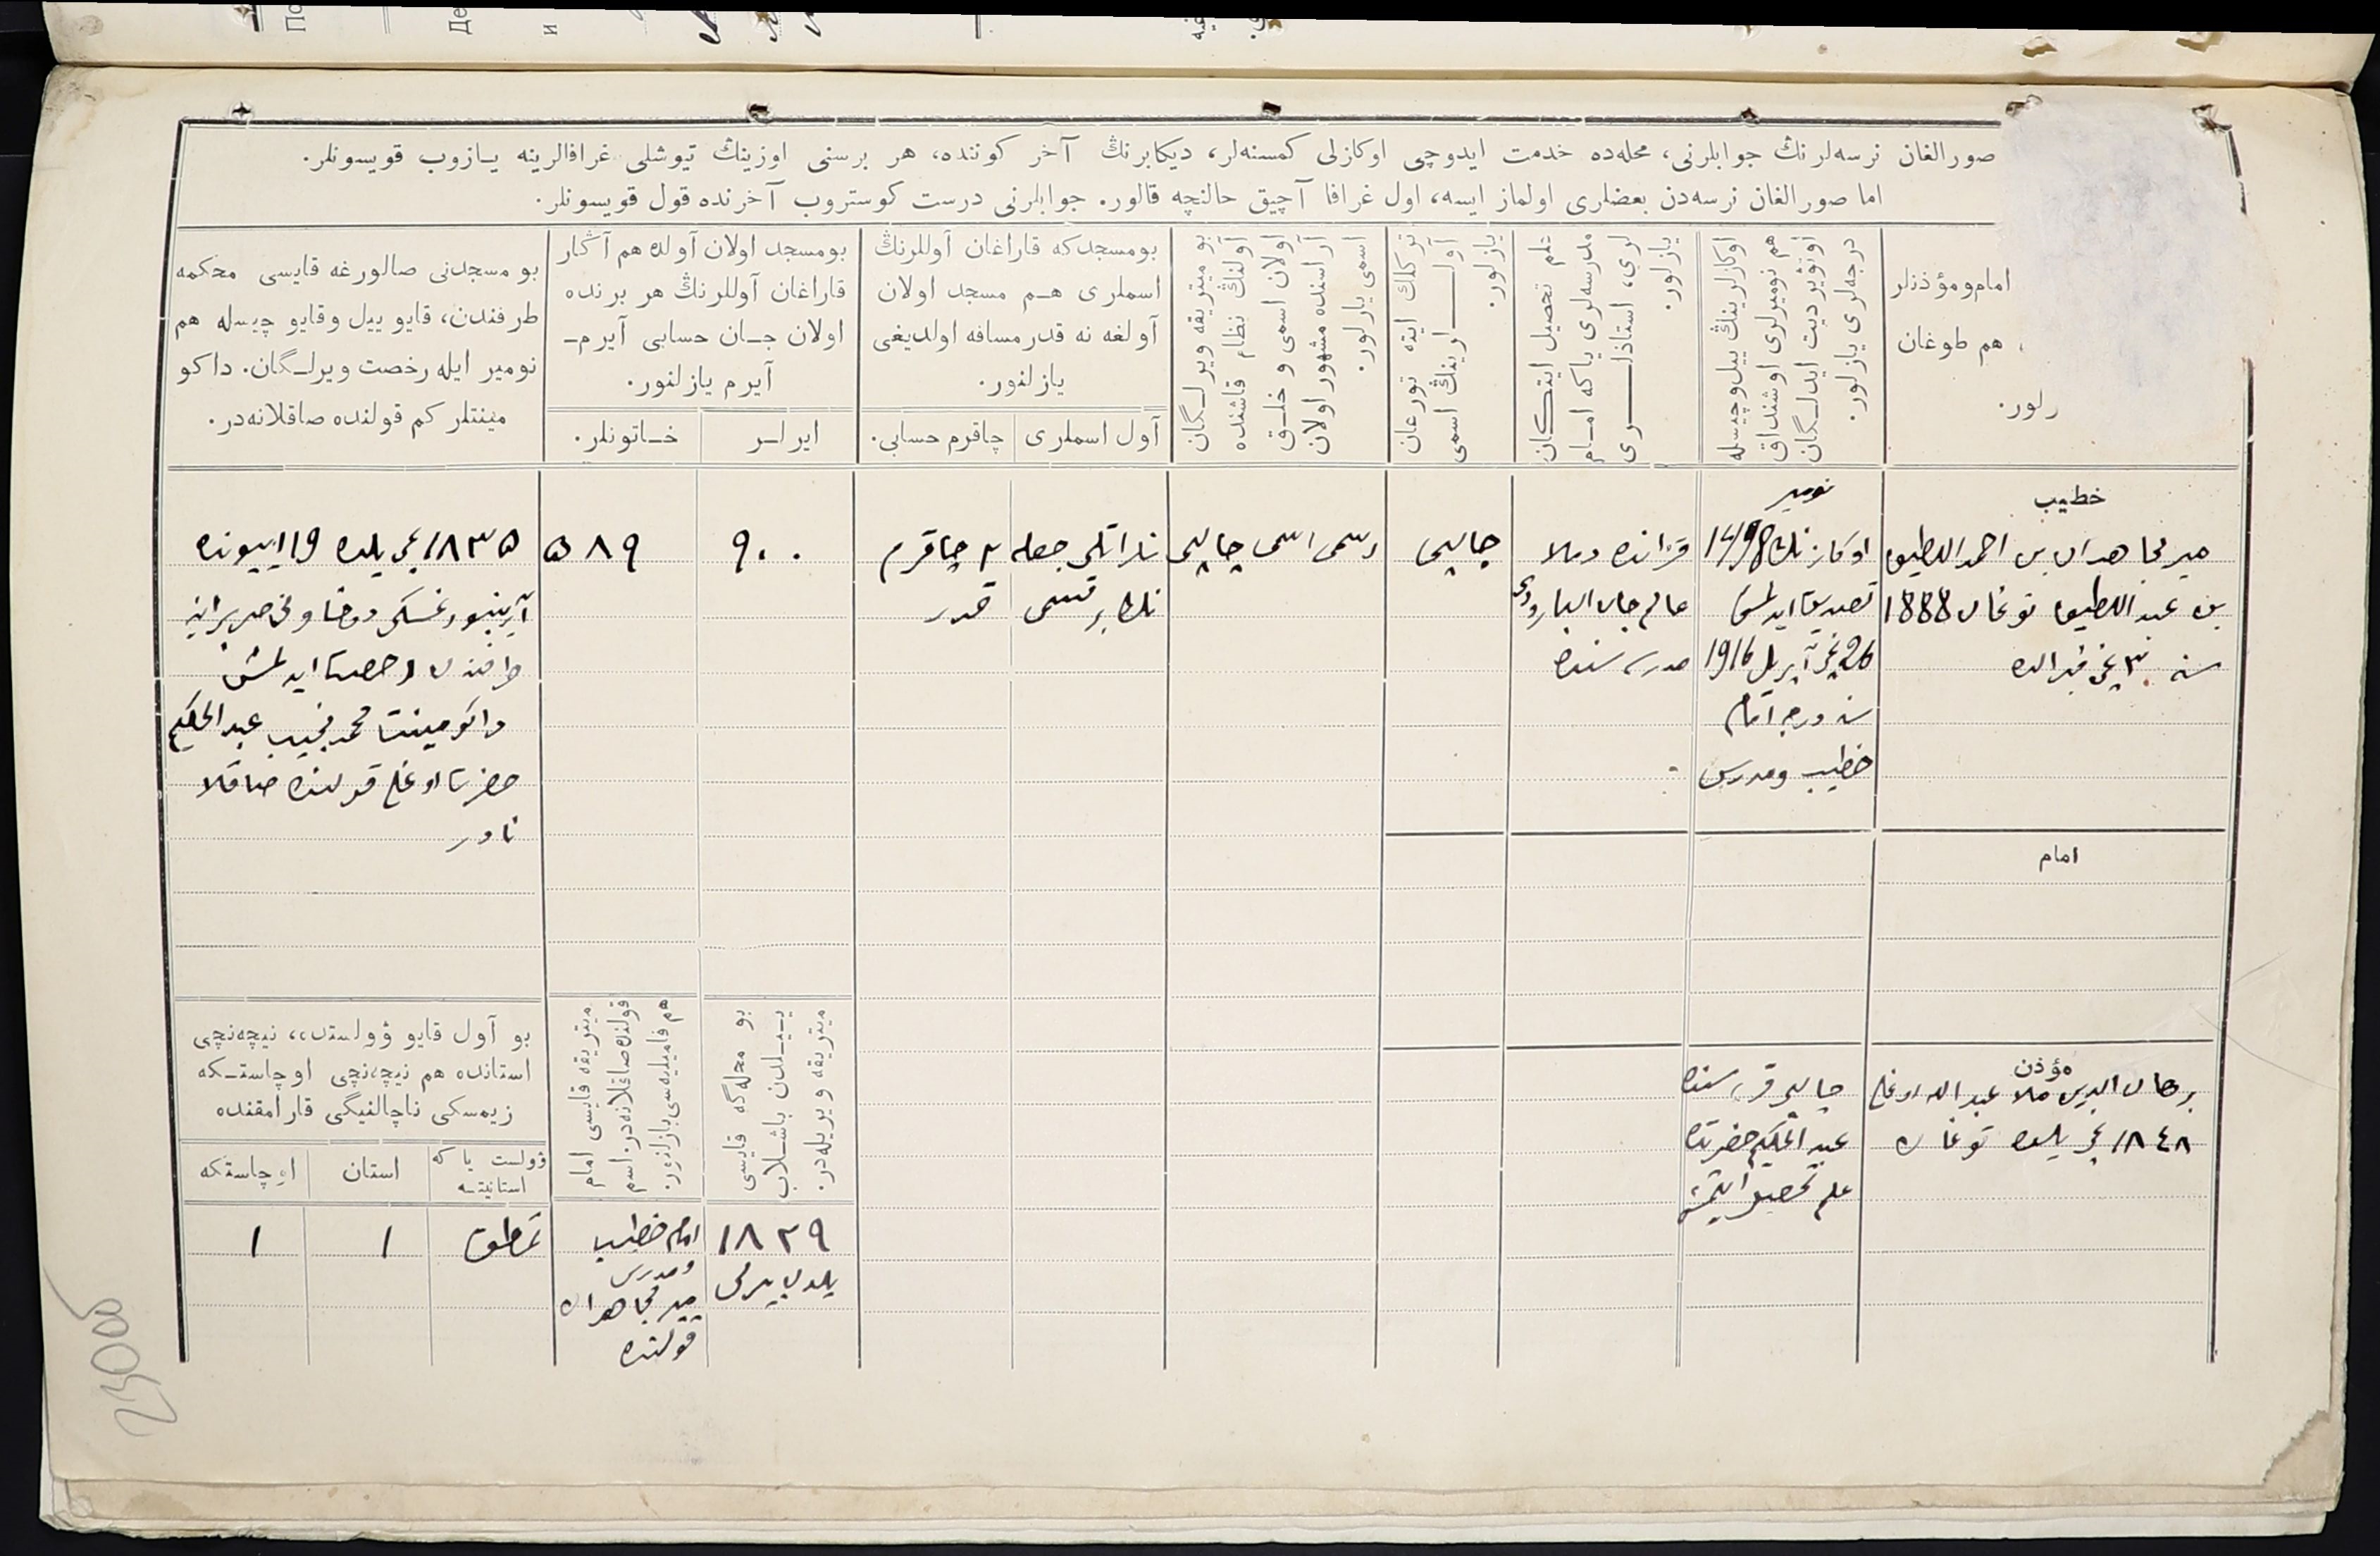 صورالغان نرسه‌لرنڭ جوابلرنی، محله‌ده خدمت ایدوچی اوکازلی کمسنه‌لر، دیکابرنڭ آخر کوننده، هر برسنی اوزینڭ تیوشلی غرافالرینه یازوب قویسونلر.
اما صورالغان نرسه‌دن بعضلری اولماز ایسه، اول غرافا آچیق حالنچه قالور. جوابلرنی درست کوستروب آخرنده قول قویسونلر.
امام ومؤذنلر
هم طوغان
رلور.
اوکازلرینڭ ییل وچیسله
هم نومیرلری اوشنداق
اوتویژردیت ایدلگان
درجه‌لری یازلور.
علم تحصیل ایتکان
مدرسه‌لری یاکه امام
لری، استاذلری
یازلور.
ترکلك ایته تورغان
آوللرینڭ اسمی
یازلور.
بو میتریقه ویرلگان
آولنڭ نظام قاشنده
اولان اسمی و خلق
آراسنده مشهور اولان
اسمی یازلور.
بومسجدکه قاراغان آوللرنڭ
اسملری هم مسجد اولان
آولغه نه قدر مسافه اولدیغی
یازلنور.
آول اسملری
چاقرم حسابی.
بومسجد اولان آولده هم آڭار
قاراغان آوللرنڭ هر برنده
اولان جان حسابی آیرم-
آیرم یازلنور.
ایرلر
خاتونلر.
بو مسجدنی صالورغه قایسی محکمه
طرفندن، قایو ییل وقایو چیسله هم
نومیر ایله رخصت ویرلگان. داکو
مینتلر کم قولنده صاقلانه‌در.
خطیب
میرمجاهدان بن احمد اللطیف
بن عبد اللطیف توغان 1888
سنه ۳ نچی فیرالده
نومیر
اوکازنڭ 1498
تصدیق ایدلمش
26 نچی آپریل 1916
سنه درجه امام
خطیب ومدرس
قزانده دملا
عالم جان البارودی
مدرسه سنده
چالپی
رسمی اسمی چالپی
ناراتلی جمله
نڭ برقسمی
۲ چاقرم
قدر
۹۰۰
۵۸۹
۱۸۳۵ نچی یلده ۱۹ اییونده
آرینبورغسکی دوخاونی صبرانیه
طرفندن رخصت ایدلمش
داکومینت محمد نجیب عبد الحکیم
حضرت اوغلی قولنده صاقلا
نادر
امام
مؤذن
برهان الدین ملا عبد الله اوغلی
۱۸٤۸ نچی یلده توغان
چالپی قریه سنده
عبد الحکیم حضرتده
علم تحصیل ایتمش
بو محله‌گه قایسی
ییلدن باشلاب
میتریقه ویریله‌در.
میتریقه قایسی امام
قولنده صاقلانه‌در. اسم
هم فامیلیه‌سی یازلنور.
بو آول قایو ۋولستده، نیچه‌نچی
استانده هم نیچه‌نچی اوچاستکه
زیمسکی ناچالنیگی قارامقنده
ۋولست یاکه
استانیتسه
استان
اوچاستکه
۱۸۲۹
یلدن بیرلی
امام خطیب
ومدرس
میرمجاهدان
قولنده
۱
۱